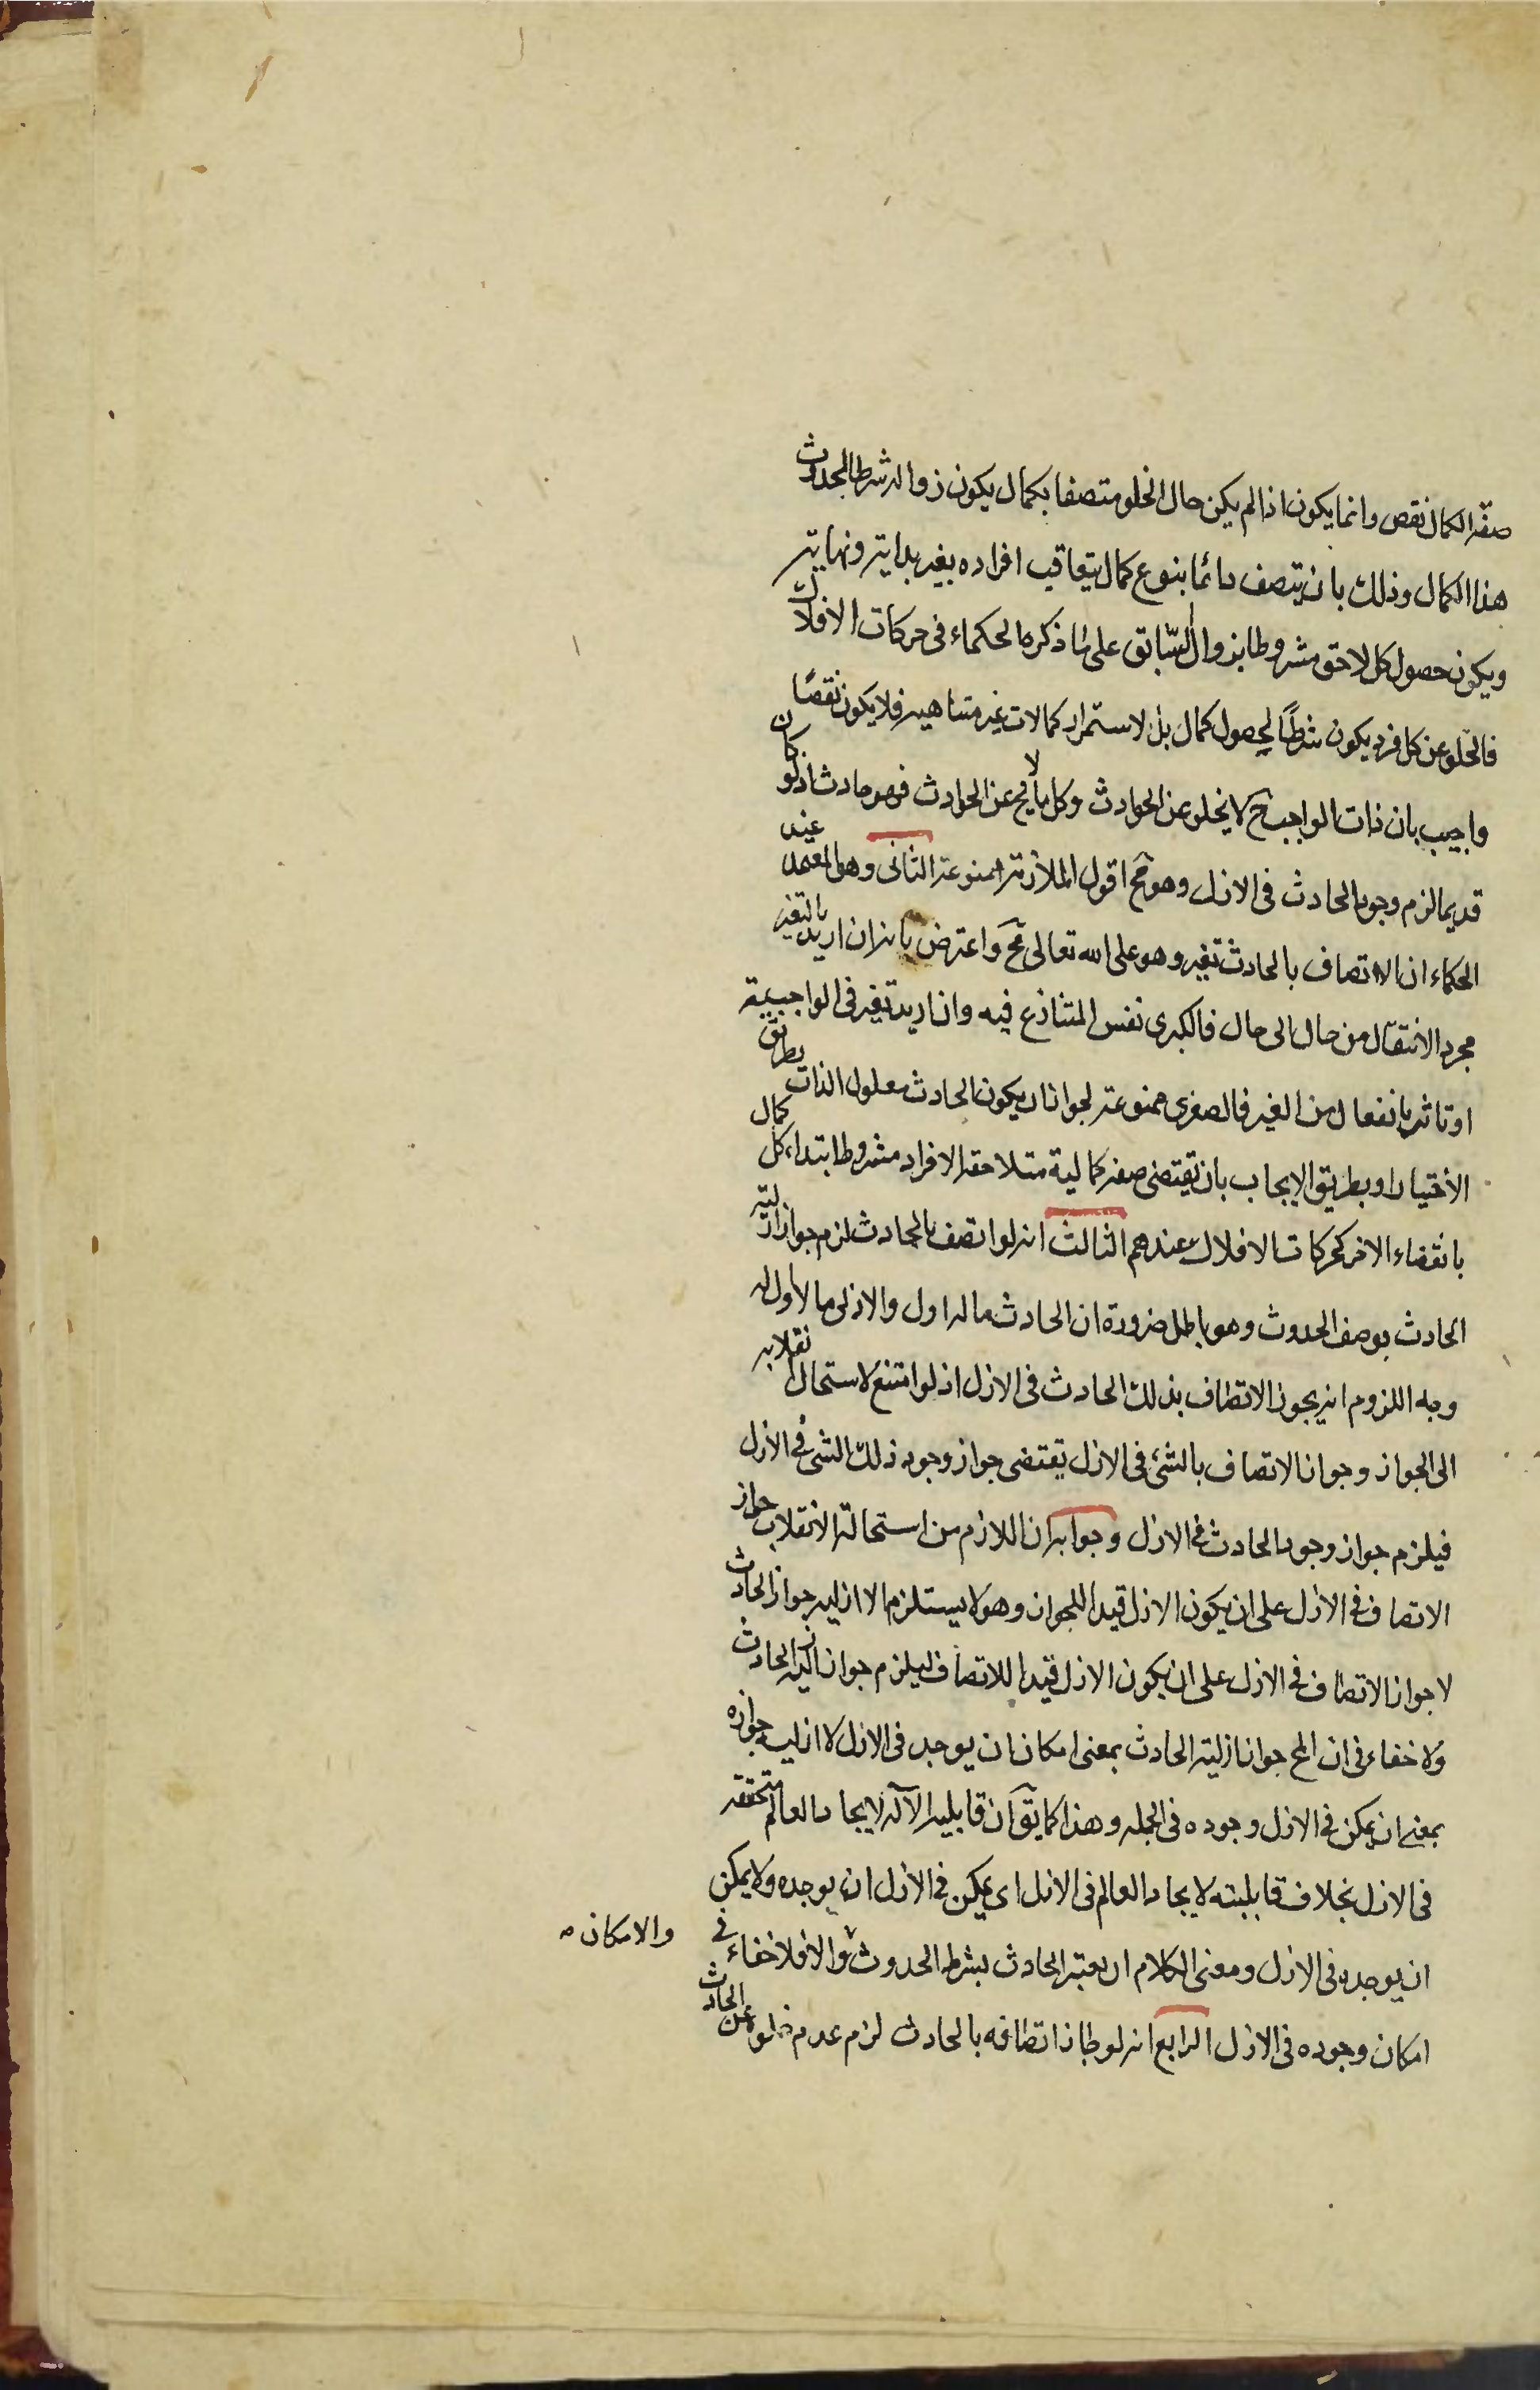 صفة الكمال نقص وانما يكون اذا لم يكن حال الخلو متصفا بكمال يكون زواله شرطا لحدوث
هذا الكمال وذلك بان يتصف دائما بنوع كمال يتعاقب افراده بغير بداية ونهاية
ويكون حصول كل لاحق مشروطا بزوال السّابق على ما ذكره الحكماء فى حركات الافلاك
فالخلو عن كل فرد يكون شرطًا لحصول كمال بل لاستمرار كمالات غير متناهية فلا يكون نقصًا
واجيب بان ذات الواجب ح لا يخلو عن الحوادث وكل ما لا يخ عن الحوادث فهو حادث اذ لو كان
قديما لزم وجود الحادث فى الازل وهو مح اقول الملازمة ممنوعة الثانى وهو المعتمد عند
الحكماء ان الاتصاف بالحادث تغير وهو على الله تعالى مح واعترض بانه ان اريد بالتغير
مجرد الانتقال من حال الى حال فالكبرى نفس المتنازع فيه وان اريد تغير فى الواجبية
او تاثر بانفعال من الغير فالصغرى ممنوعة لجواز ان يكون الحادث معلول الذات بطريق
الاختيار او بطريق الايجاب بان يقتضى صفة كمالية متلاحقة الافراد مشروطا ابتداء كل كمال
بانقضاء الاخر كحركات الافلاك عندهم الثالث انه لو اتصف بالحادث لزم جواز ازلية
الحادث بوصف الحدوث وهو باطل ضرورة ان الحادث ما له اول والازلى ما لا اول له
وجه اللزوم انه يجوز الاتصاف بذلك الحادث فى الازل اذ لو امتنع لاستحال انقلابه
الى الجواز وجواز الاتصاف بالشئ فى الازل يقتضى جواز وجود ذلك الشئ فى الازل
فيلزم جواز وجود الحادث فى الازل وجوابه ان اللازم من استحالة الانقلاب جواز
الاتصاف فى الازل على ان يكون الازل قيدا للجواز وهو لا يستلزم الا ازلية جواز الحادث
لا جواز الاتصاف فى الازل على ان يكون الازل قيدا للاتصاف ليلزم جواز ازلية الحادث
ولا خفاء فى ان المح جواز ازلية الحادث بمعنى امكان ان يوجد فى الازل لا ازلية جوازه
بمعنى ان يمكن فى الازل وجوده فى الجملة وهذا كما يق ان قابلية الاله لايجاد العالم متحققة
فى الازل بخلاف قابليته لايجاد العالم فى الازل اى يمكن فى الازل ان يوجده ولا يمكن
ان يوجده فى الازل ومعنى الكلام ان يعتبر الحادث بشرط الحدوث والا فلا خفاء فى
والامكان
امكان وجوده فى الازل الرابع انه لو جاز اتصافه بالحادث لزم عدم خلوه عن الحادث